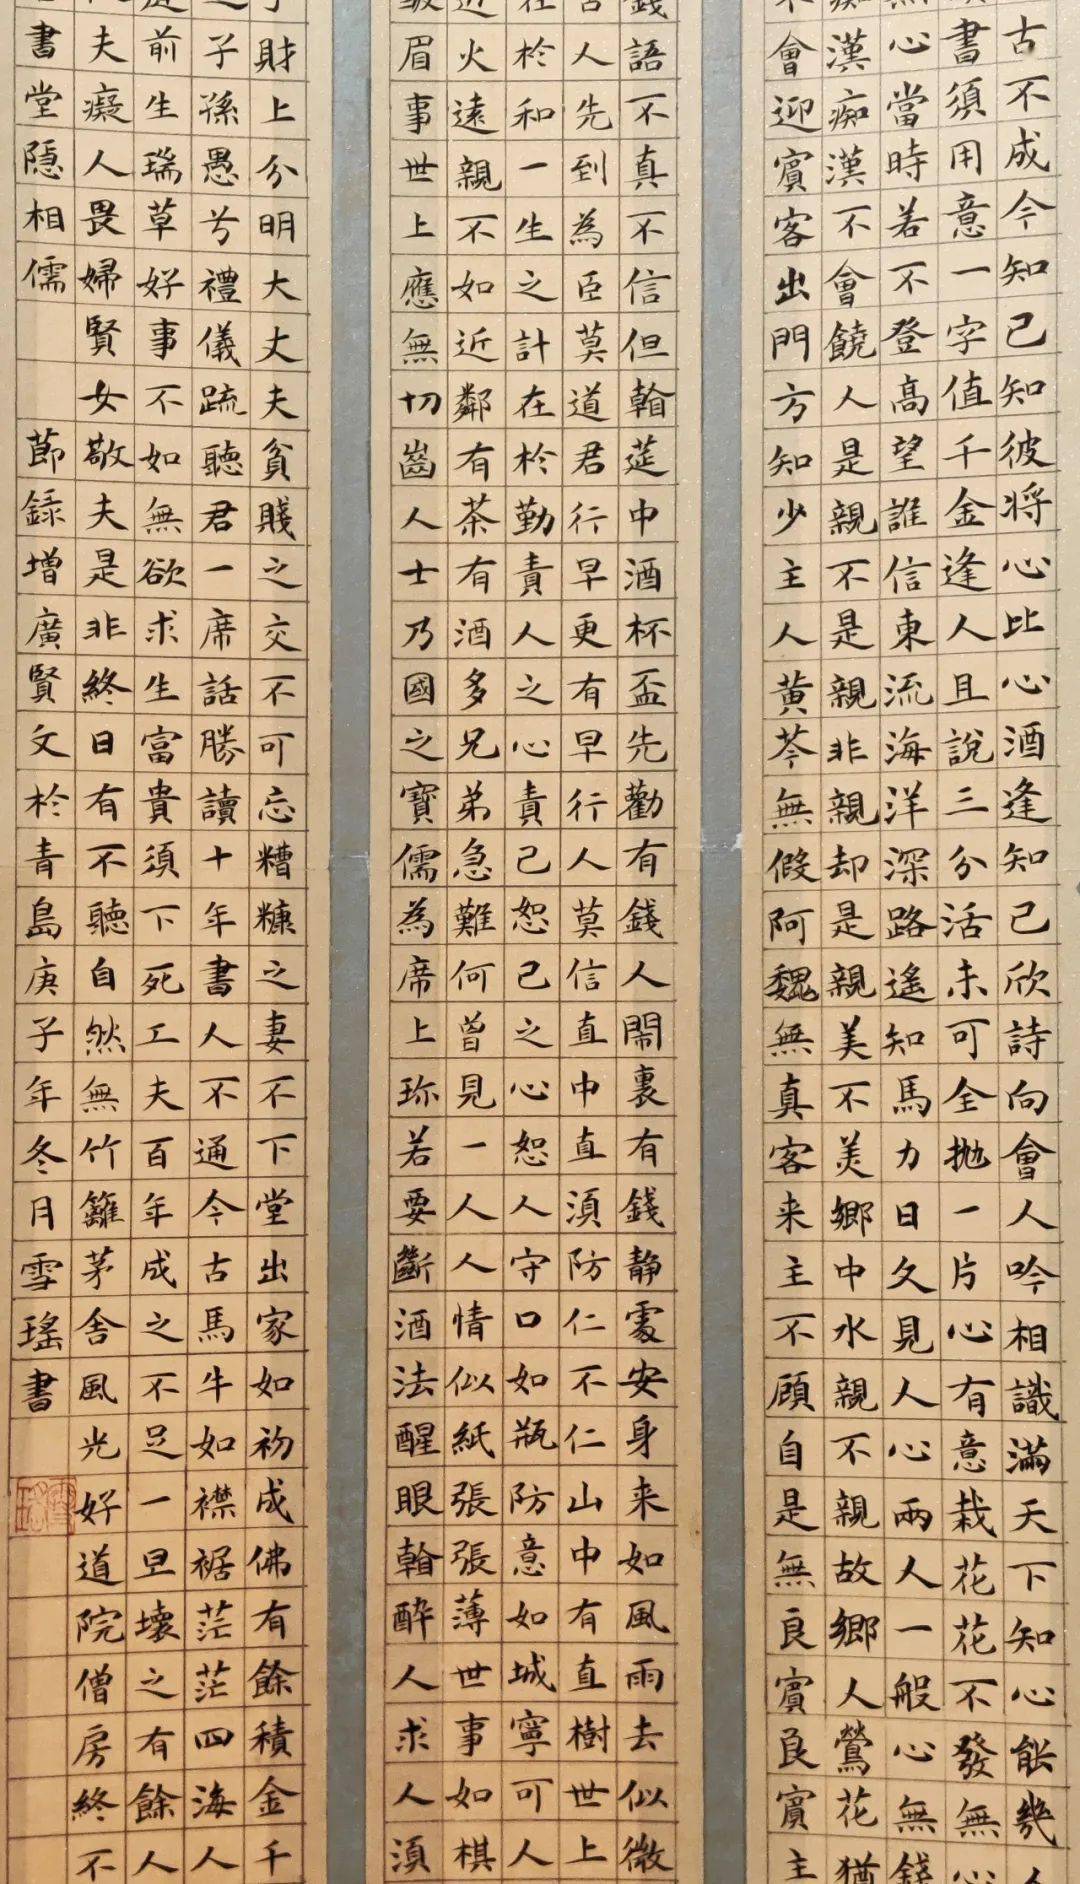 古不成今知己知彼將心比心酒逢知己欣詩向會人吟相識滿天下知心能幾
書須用意一字值千金逢人且說三分活未可全拋一片心有意栽花花不發無心
心當時若不登高望誰信東流海洋深路遙知馬力日久見人心兩人一般心無錢
漢痴漢不會饒人是親不是親非親却是親美不美鄉中水親不親故鄉人鶯花猶
會迎賓客出門方知少主人黃芩無假阿魏無真客来主不顧自是無良賓良賓主
錢語不真不信但翰莚中酒杯盃先勸有錢人鬧裏有錢静處安身来如風雨去似微
人先到為臣莫道君行早更有早行人莫信直中直須防仁不仁山中有直樹世上
在於和一生之計在於勤責人之心責己恕己之心恕人守口如瓶防意如城寧可人
近火遠親不如近鄰有茶有酒多兄弟急難何曾見一人人情似紙張張薄世事如棋
眉事世上應無切齒人士乃國之寶儒為席上珎若要斷酒法醒眼翰醉人求人須
財上分明大丈夫貧賤之交不可忘糟糠之妻不下堂出家如初成佛有餘積金千
子孫愚兮禮儀疏聽君一席話勝讀十年書人不通今古馬牛如襟裾茫茫四海人
前生瑞草好事不如無欲求生富貴須下死工夫百年成之不足一旦壞之有餘人
夫癡人畏婦賢女敬夫是非終日有不聽自然無竹籬茅舍風光好道院僧房終不
書堂隱相儒 節録增廣賢文於青島庚子年冬月雪瑤書